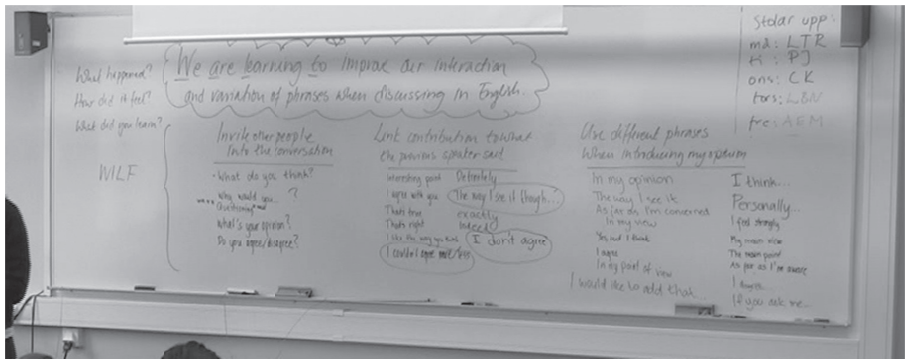 What happened?
How did it feel?
What did you learn?
WILF
We are learning to improve our interaction
and variation of phrases when discussing in English.
Invite other people
into the conversation
- What do you think?
Why would you... ?
What's your opinion?
Do you agree/disagree?
Link contribution to what
the previous speaker said
Interesting point Definitely
I agree with you The way I see it though...
That's true exactly
That's right Indeed
I like the way you think I don't agree
I couldn't agree more/less
Use different phrases
When introducing my opinion
In my opinion
The way I see it
As far as I'm concerned
In my view
Yes but I think
I agree
In my point of view
I would like to add that...
I think...
Personally...
I feel strongly
My main view
The main point
As far as I'm aware
I
If you ask me...
Stolar upp:
må: LTR
ti: PJ
ons: CK
tors: LBN
fre: AEM